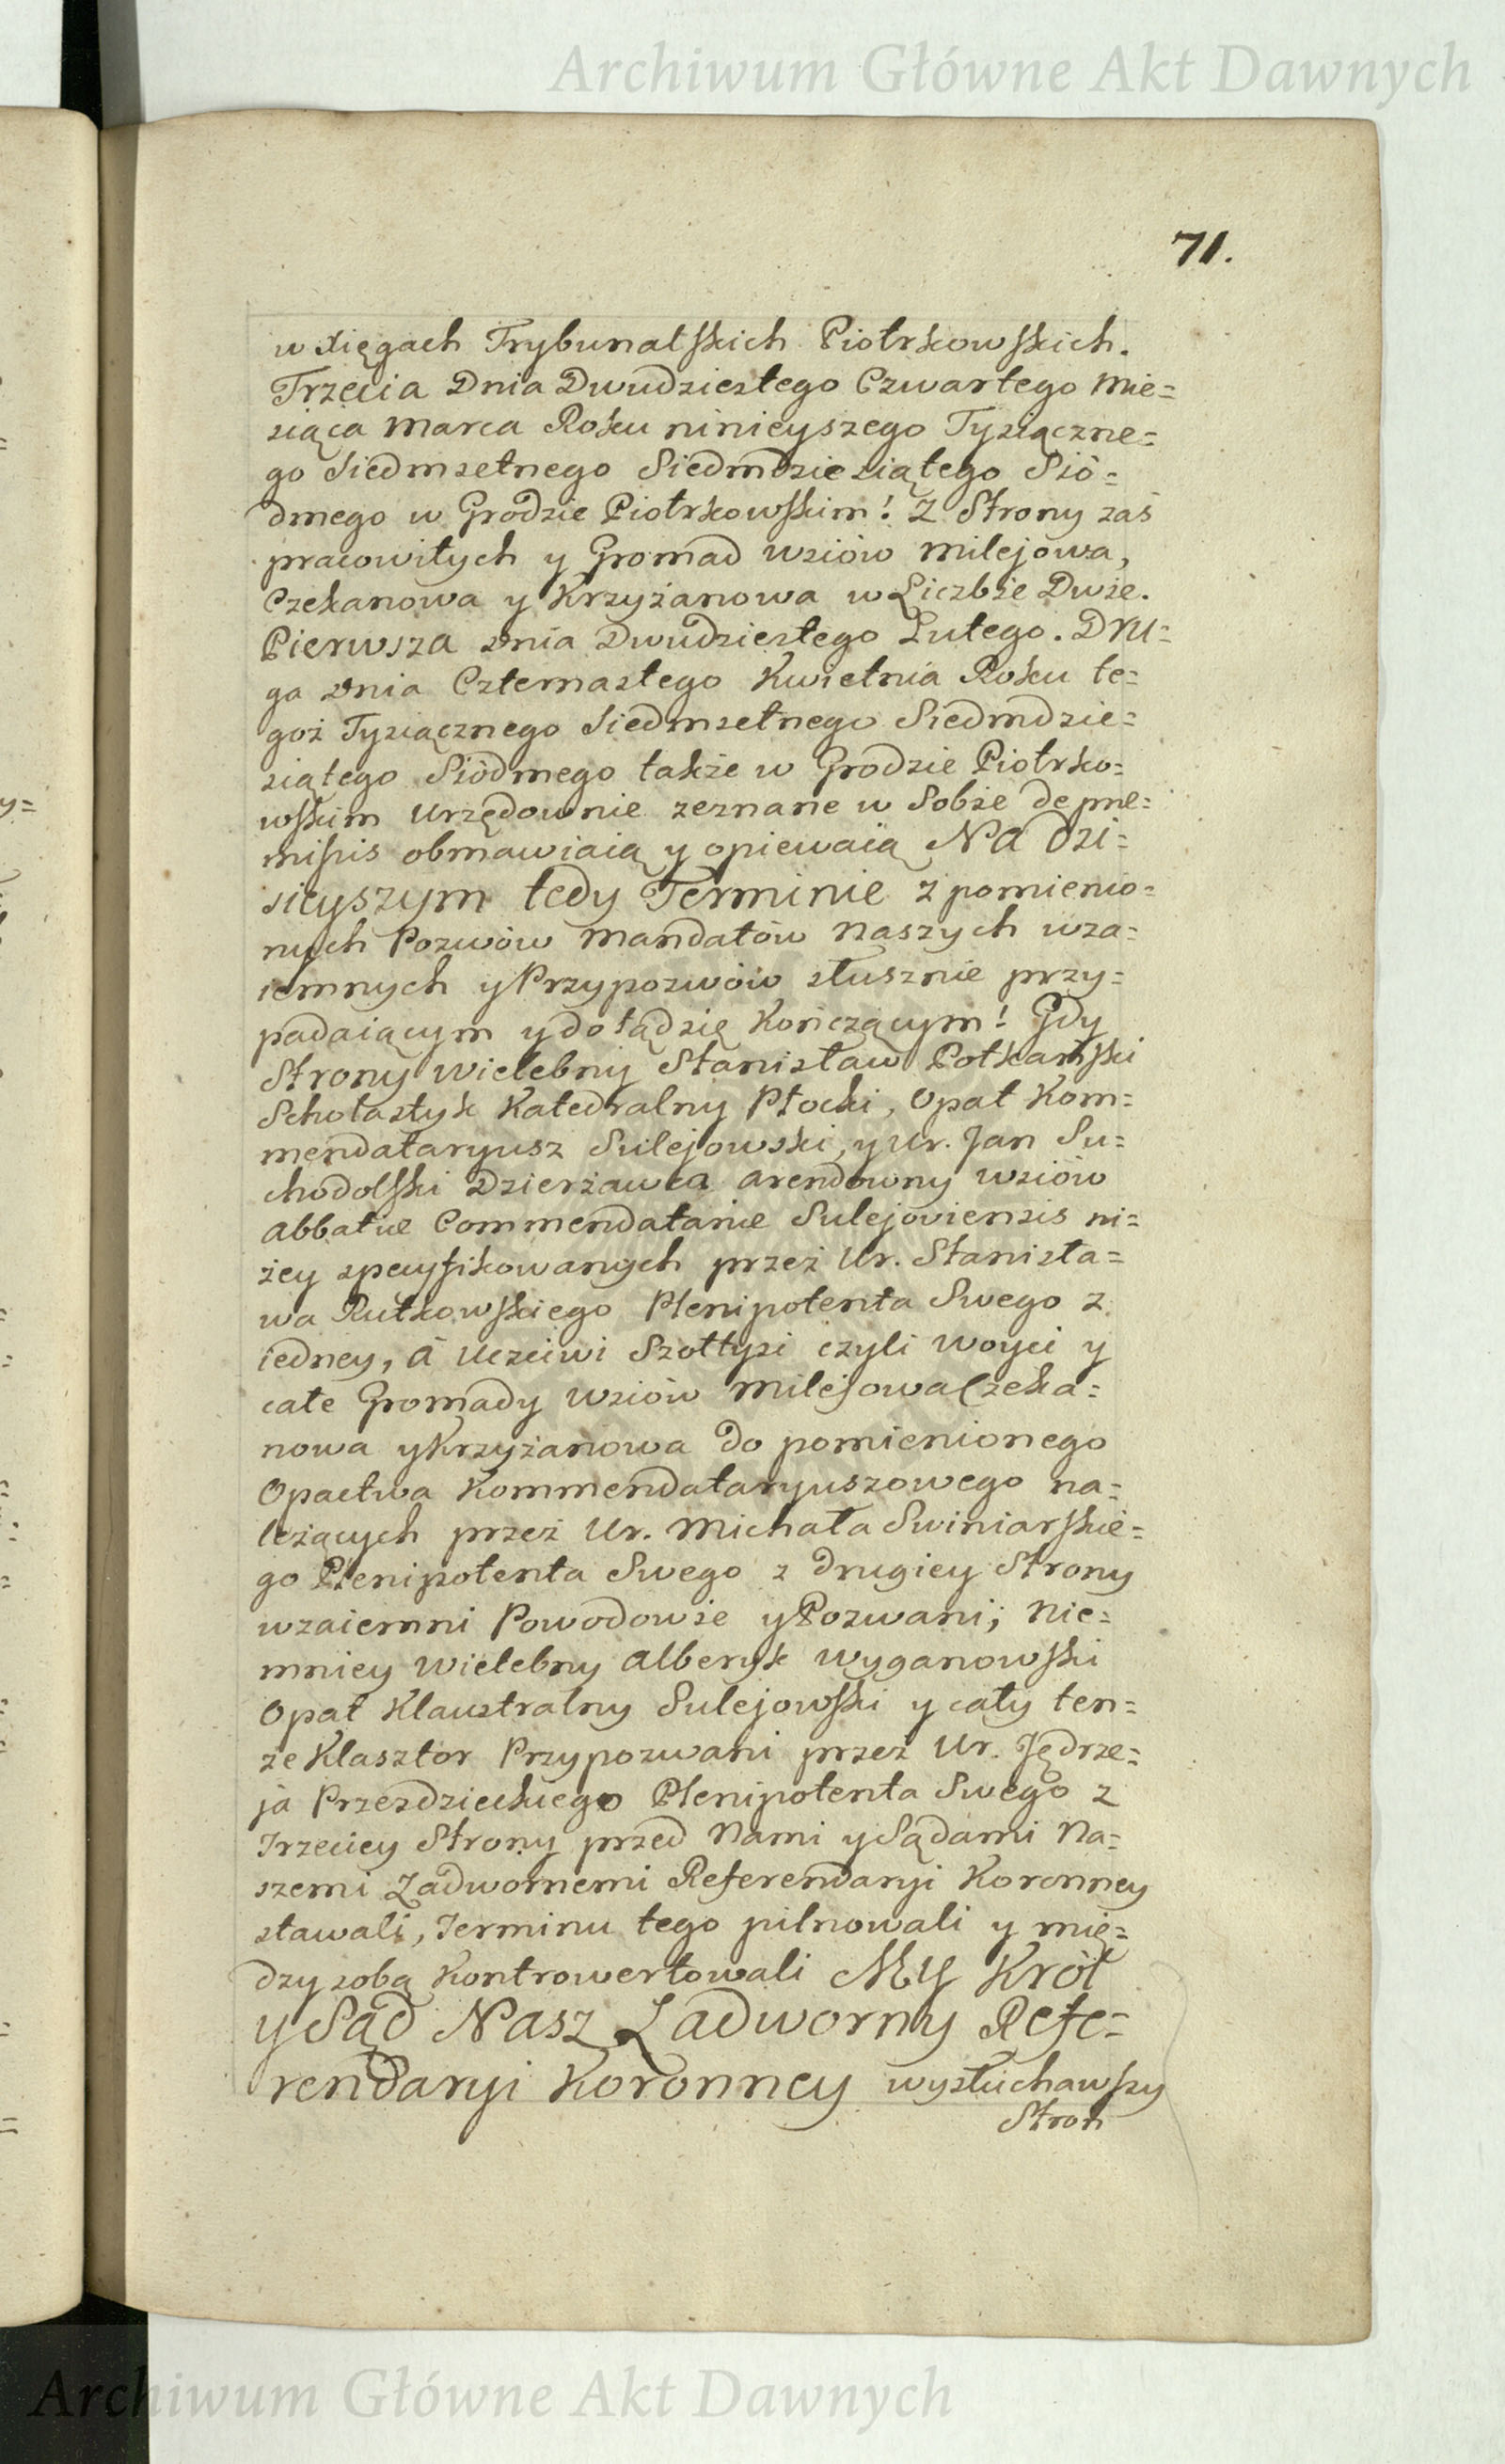 Archiwum Główne Akt Dawnych
71.
w Xięgach Trybunalskich Piotrkowskich.
Trzecia Dnia Dwudziestego Czwartego Mie=
siąca Marca Roku ninieyszego Tysiączne=
go Siedmsetnego Siedmdziesiątego Sió=
dmego w Grodzie Piotrkowskim! Z Strony zaś
pracowitych y Gromad wsiów Milejowa,
Czekanowa y Krzyżanowa w Liczbie Dwie.
Pierwsza Dnia Dwudziestego Lutego. Dru=
ga Dnia Czternastego Kwietnia Roku te=
goż Tysiącznego Siedmsetnego Siedmdzie=
siątego Siódmego także w Grodzie Piotrko=
wskim Urzędownie zeznane w Sobie de prae=
missis obmawiaią y opiewaią Na Dzi=
sieyszym tedy Terminie z pomienio=
nych Pozwów Mandatów Naszych wza=
iemnych y Przypozwów słusznie przy=
padaiącym y dotądsię Kończącym! Gdy
Strony Wielebny Stanisław Potkański
Scholastyk Katedralny Płocki, Opat Kom=
mendataryusz Sulejowski, y Ur. Jan Su=
chodolski Dzierżawca arendowny wsiów
Abbatiae Commendatariae Sulejoviensis ni=
żey specyfikowanych przez Ur. Stanisła=
wa Rutkowskiego Plenipotenta Swego z
iedney, á Uczciwi Szołtysi czyli Woyci y
całe Gromady Wsiów Milejowa Czeka=
nowa y Krzyżanowa do pomienionego
Opactwa Kommendataryuszowego na=
leżących przez Ur. Michała Swiniarskie=
go Plenipotenta Swego z drugiey Strony
wzaiemni Powodowie y Pozwani; Nie=
mniey Wielebny Alberyk Wyganowski
Opat Klaustralny Sulejowski y cały ten=
że Klasztor Przypozwani przez Ur. Jędrze=
ja Przezdzieckiego Plenipotenta Swego z
Trzeciey Strony przed Nami y Sądami Na=
szemi Zadwornemi Referendaryi Koronney
stawali, Terminu tego pilnowali y mię=
dzy sobą Kontrowertowali My Król
y Sąd Nasz Zadworny Refe=
rendaryi Koronney wysłuchawszy
Stron
Archiwum Główne Akt Dawnych